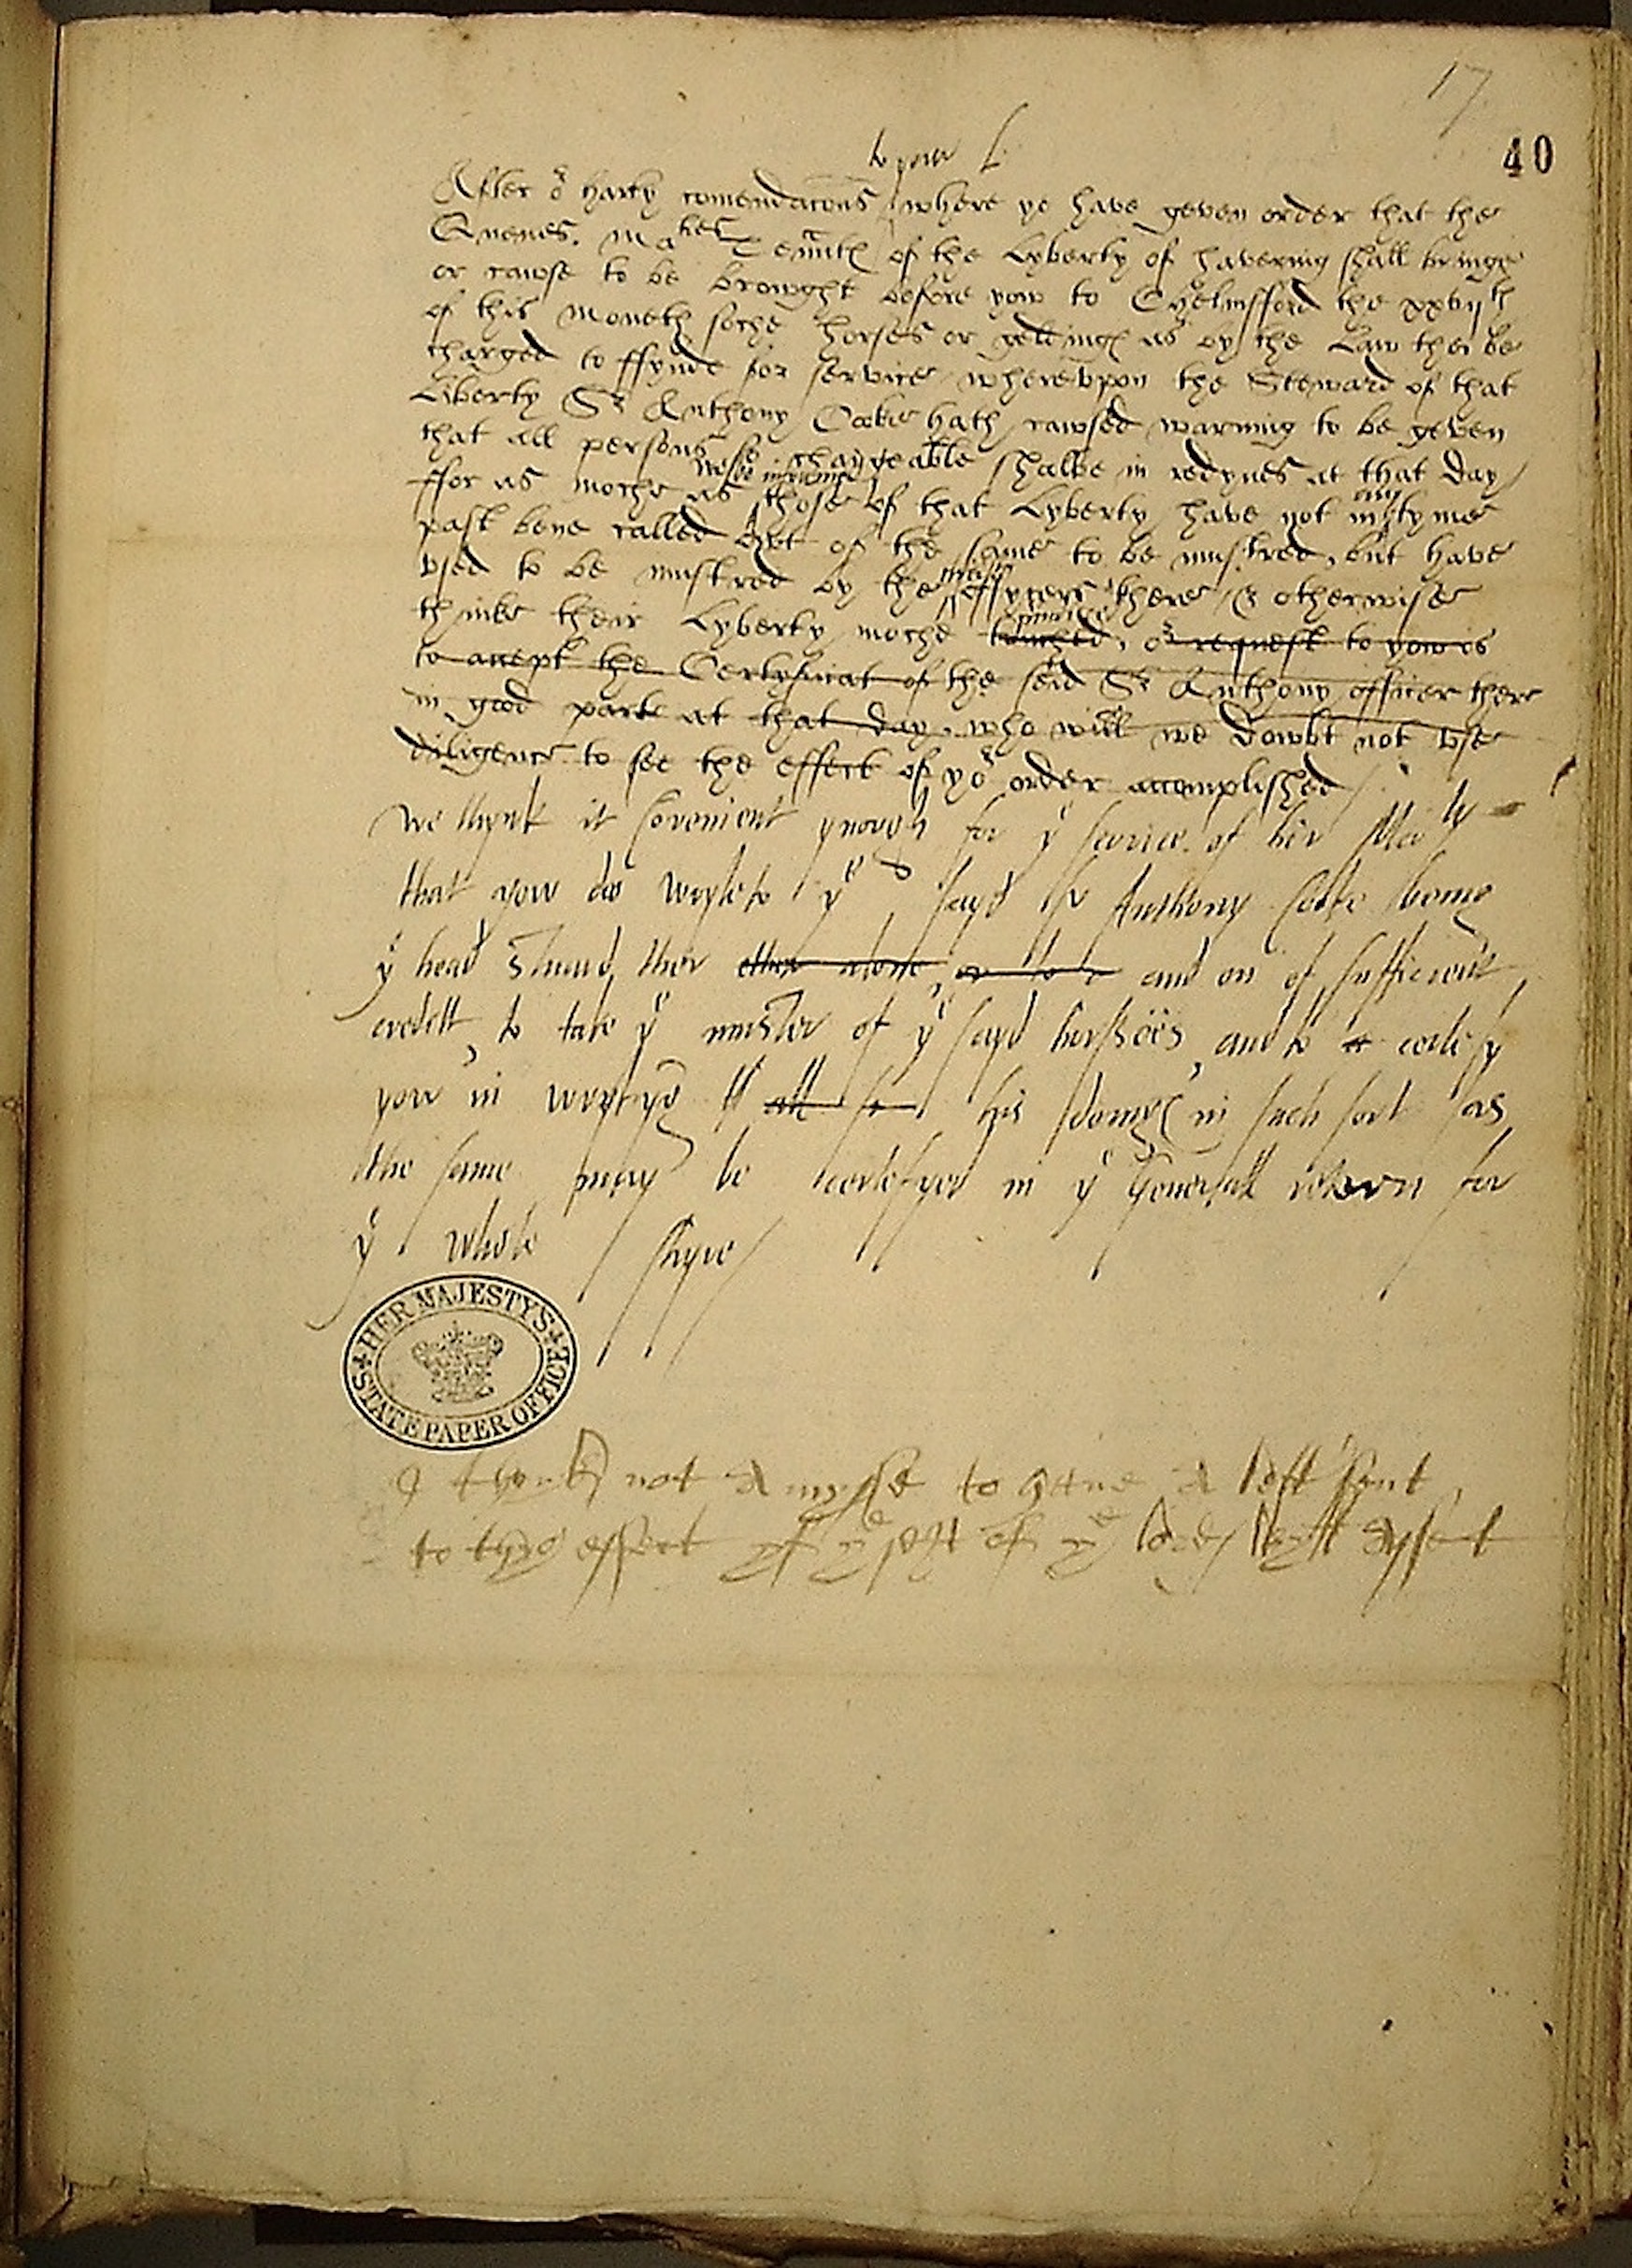 17
40
to your L.
After or harty comendacons where ye have geven order that the
Quenes Maties Tennts of the Lyberty of havering shall bringe
or cawse to be browght before yow to Chelmsford the xxviijth
of this moneth soche horses or geldings as by the Law thei be
charged to ffynde for service wherevpon the Steward of that
Liberty Sr Anthony Cooke hath cawsed warning to be geven
that all persons chargeable shalbe in redynes at that day
we be informed
ffor as moche as those of that Lyberty have not in any tyme
past bene called owt of the same to be mustred, but have
vsed to be mustred by the offycers there & otherwise
thinke their Lyberty moche touched, or request to yow is
to accept the Certyficat of the seid Sr Anthony officer there
in good parte at that day, who will we dowbt not vse
diligence to see the effect of yor order accomplished
we thynk it convenient ynough for ye service of hir Maty
that yow do wryte to ye sayd Sr Anthony Coke being
ye head Stuard ther and on of sufficient
creditt, to take ye muster of ye sayd horsees, and to certefy
yow in wrytyng his doings in such sort as
the same may be certefyed in ye generall retorn for
ye whole shyre
HER MAJESTY'S
STATE PAPER OFFICE
I thynk not amysse to have a lettr sent
to thys effect yf ye rest of ye lords shall assent